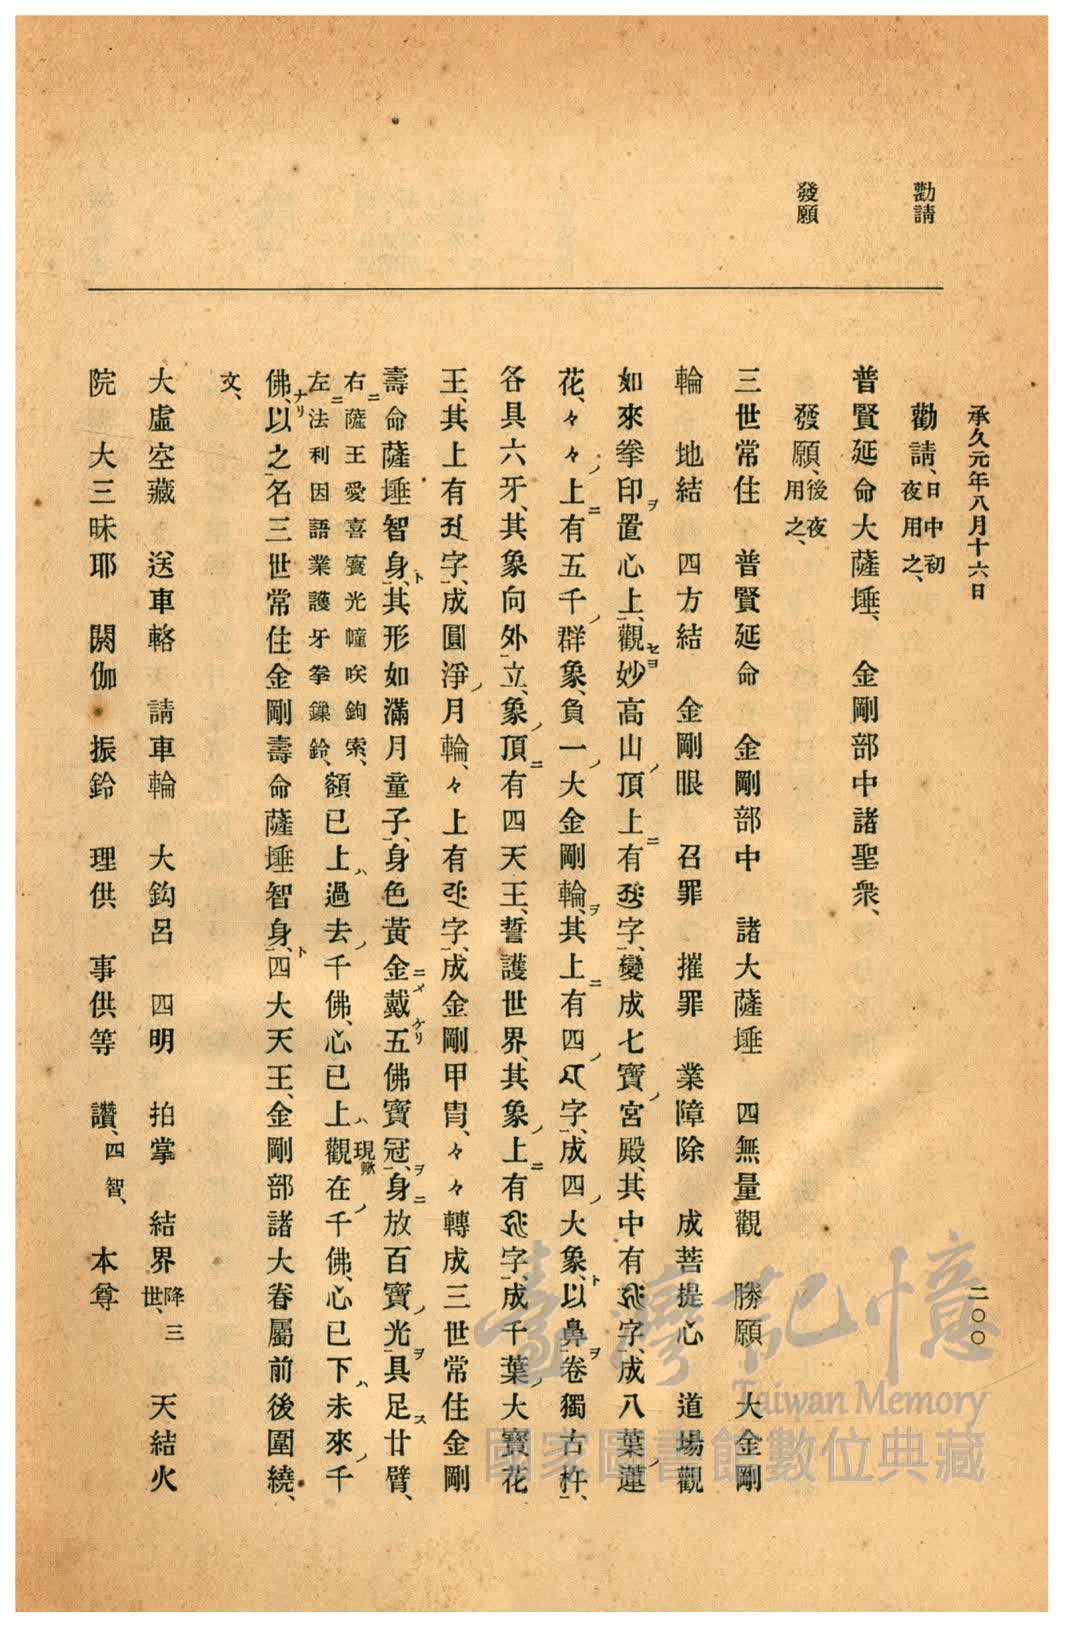 承久元年八月十六日
二〇〇
勸請
發願
勸請、日中初夜用之、
普賢延命大薩埵、　金剛部中諸聖衆、
發願、後夜用之、
三世常住　普賢延命　金剛部中　諸大薩埵　四無量觀　勝願　大金剛
輪　地結　四方結　金剛眼　召罪　摧罪　業障除　成菩提心　道場觀
如來拳印ヲ置心上、觀セヨ妙高山ノ頂上ニ有字、變成七寶ノ宮殿、其中有字、成八葉ノ蓮
花、々々ノ上ニ有五千ノ群象、負一ノ大金剛輪ヲ、其上ニ有四ノ字、成四ノ大象、以鼻ヲ卷獨古杵、
各具六牙、其象向外立、象ノ頂ニ有四天王、誓護世界、其象ノ上ニ有字、成千葉ノ大寶花
王、其上有字、成圓淨ノ月輪、々上有字、成金剛甲冑、々々轉成三世常住金剛
壽命薩埵智身ト、其形如滿月童子、身色黃金ニメ戴ケリ五佛寶冠ヲ、身ニ放百寶ノ光ヲ具足ス廿臂、
右ニ薩王愛喜寶光幢咲鉤索、左ニ法利因語業護牙拳鏁鈴、額已上ハ過去ノ千佛、心已上ハ觀現歟在ノ千佛、心已下ハ未來ノ千
佛ナリ、以之名三世常住金剛壽命薩埵智身ト、四大天王、金剛部諸大眷屬前後圍繞、
文、
大虛空藏　送車輅　請車輪　大鈎召　四明　拍掌　結界降三世、　天結火
院　大三昧耶　閼伽・振鈴　理供、　事供等　讚、四智、　本尊
臺灣記憶
Taiwan Memory
國家圖書館數位典藏